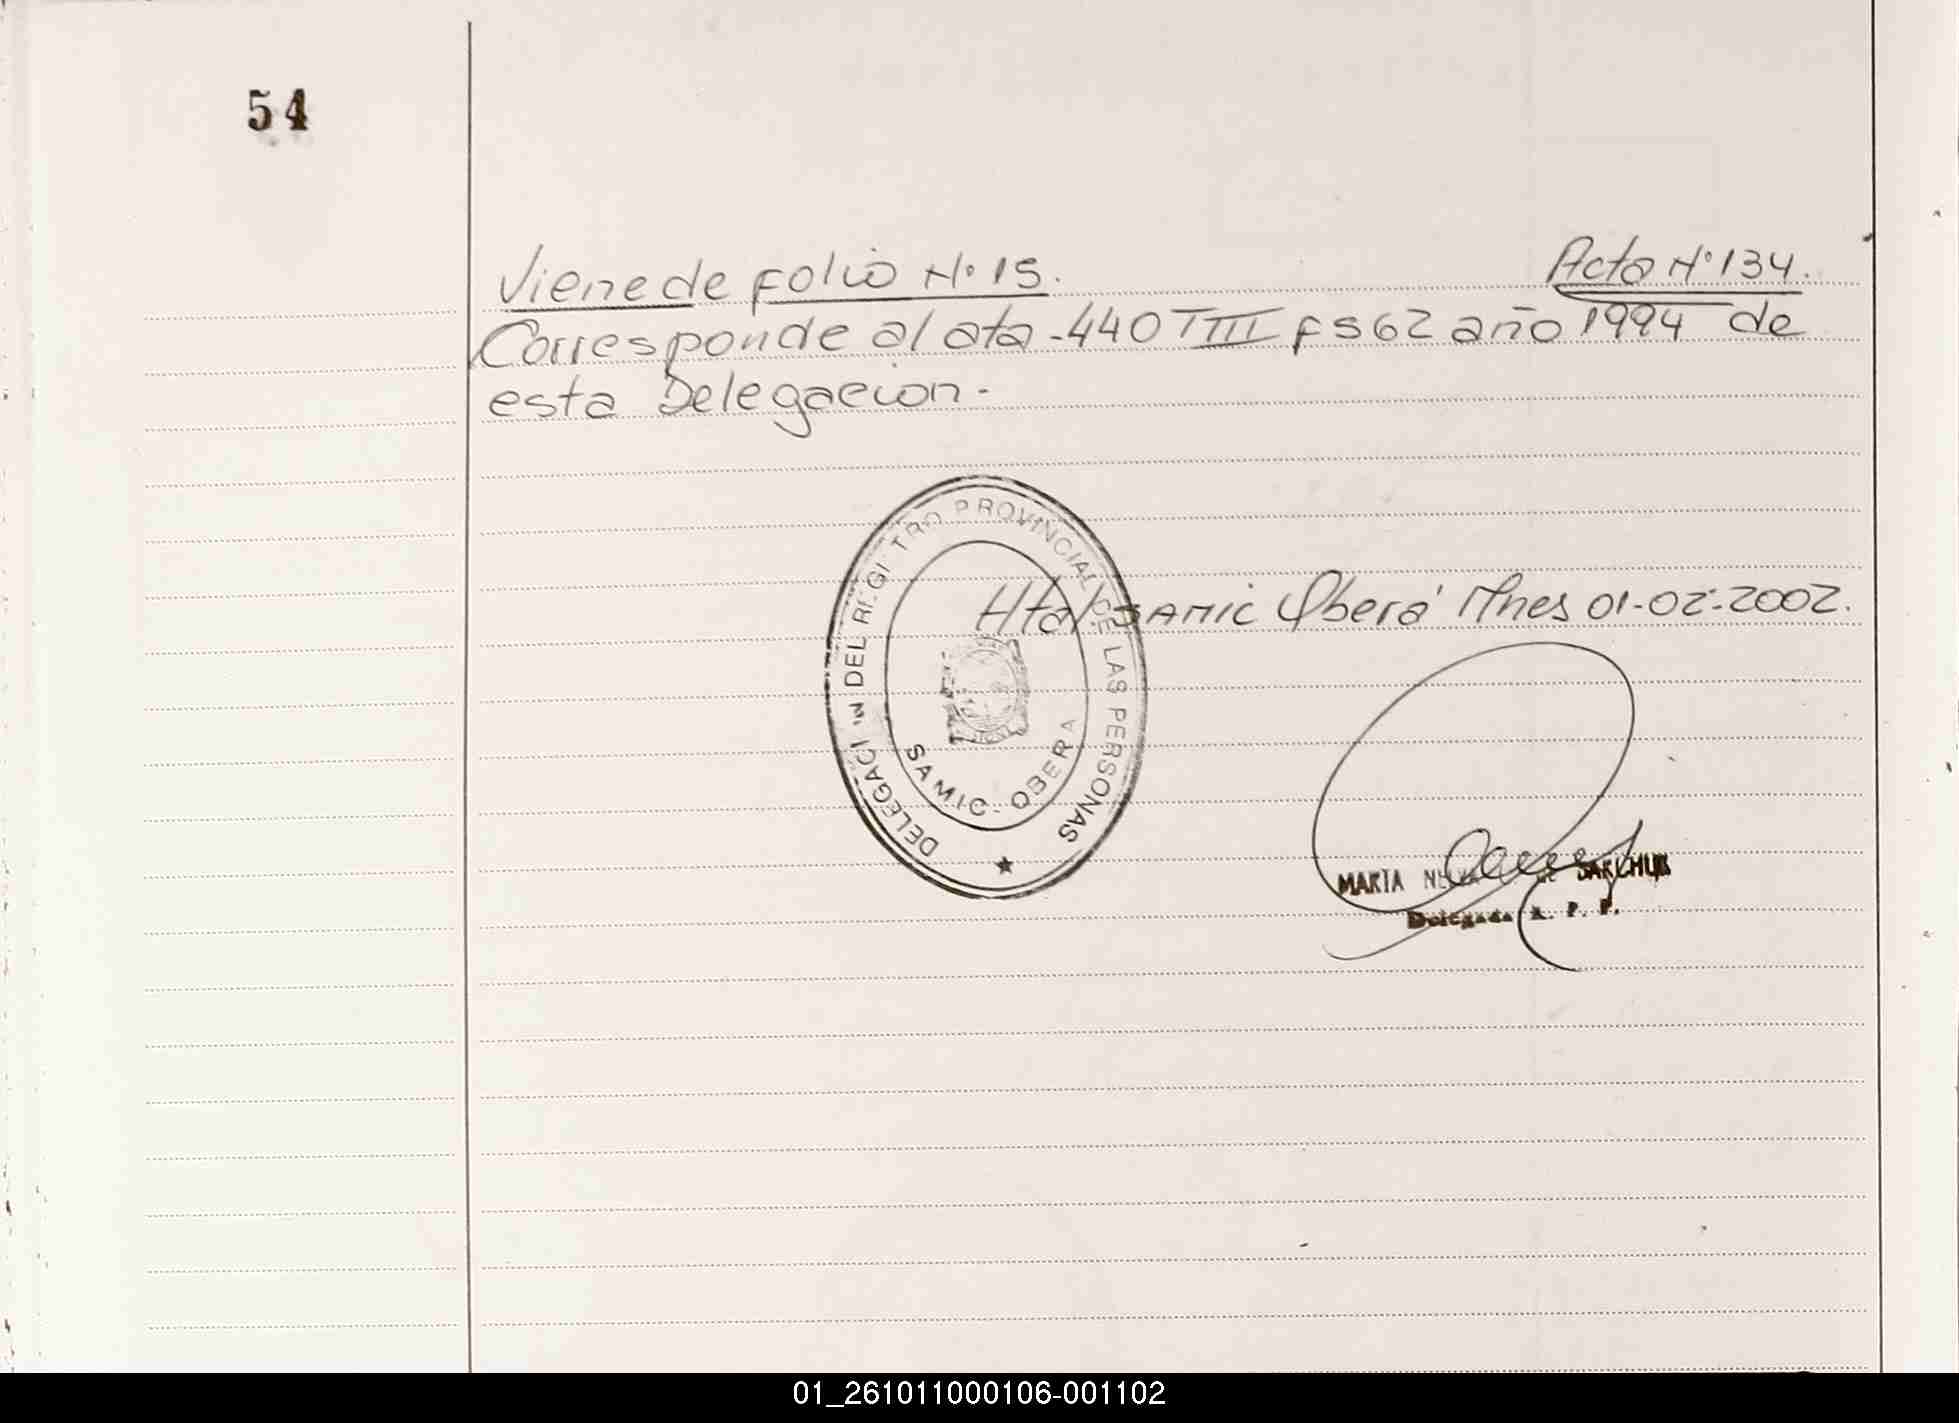 54
Viene de folio Nº 15. Acta Nº 134.
Corresponde al ata - 440 TIII F 562 año 1994 de
esta Delegacion -
DELEGACI N DEL REGI TRO PROVINCIAL DE LAS PERSONAS
SAMIC - OBERA
Htal SAMIC Oberá Mnes 01-02-2002.
MARIA DE SAKCHUK
Delegada R. P. P.
01_261011000106-001102